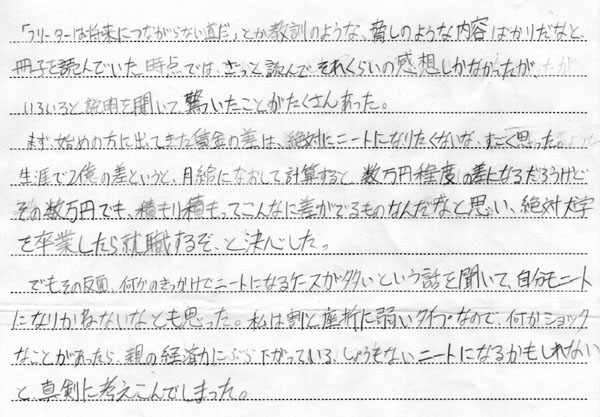 「フリーターは将来につながらない道だ」とか教訓のような、脅しのような内容ばかりだなと、
冊子を読んでいた時点では、ざっと読んでそれくらいの感想しかなかったが、
いろいろと説明を聞いて驚いたことがたくさんあった。
まず、始めの方に出てきた賃金の差は、絶対にニートになりたくないな、すごく思った。
生涯で2億の差というと、月給になおして計算すると数万円程度の差になるだろうけど
その数万円でも、積もり積もってこんなに差がでるものなんだなと思い、絶対大学
を卒業したら就職するぞ、と決心した。
でもその反面、何かのきっかけでニートになるケースが多いという話を聞いて、自分もニート
になりかねないなとも思った。私は割と挫折に弱いタイプなので、何かショック
なことがあったら、親の経済力にぶら下がっている、しょうもないニートになるかもしれない
と、真剣に考えこんでしまった。